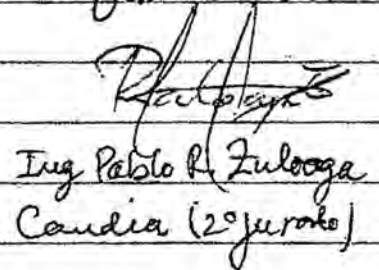 Ing Pablo R. Zuloaga
Candia (2º Jurado)